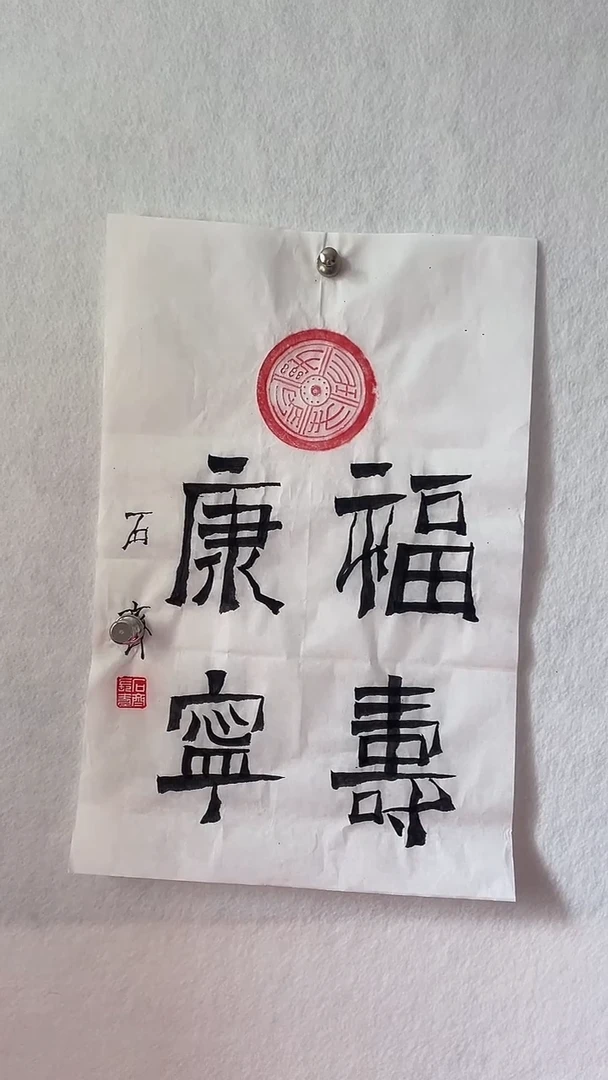 福壽
康寧
石